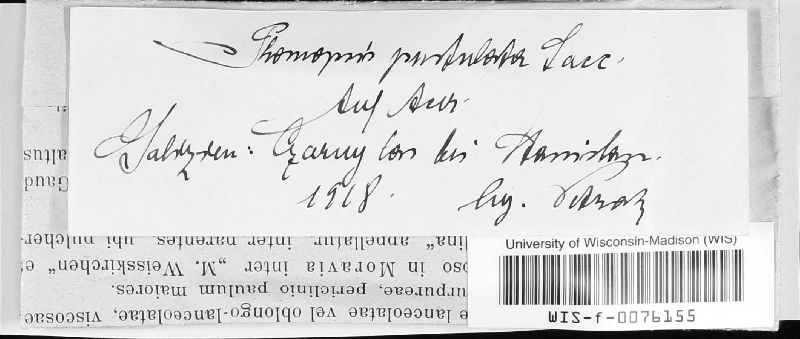 Phomopsis pustulata Sacc.
Auf Acer
Galizien: Czarny las bei Stanislau.
1918. leg. Petrak
altus
Gaud
dina" appellatur, inter parentes, ubi pulcher-
oso in Moravia inter „M. Weisskirchen" e
urpureae, periclinio paulum maiores.
e lanceolatae vel oblongo-lanceolatae, viscosae
University of Wisconsin-Madison (WIS)
WIS-f-0076155